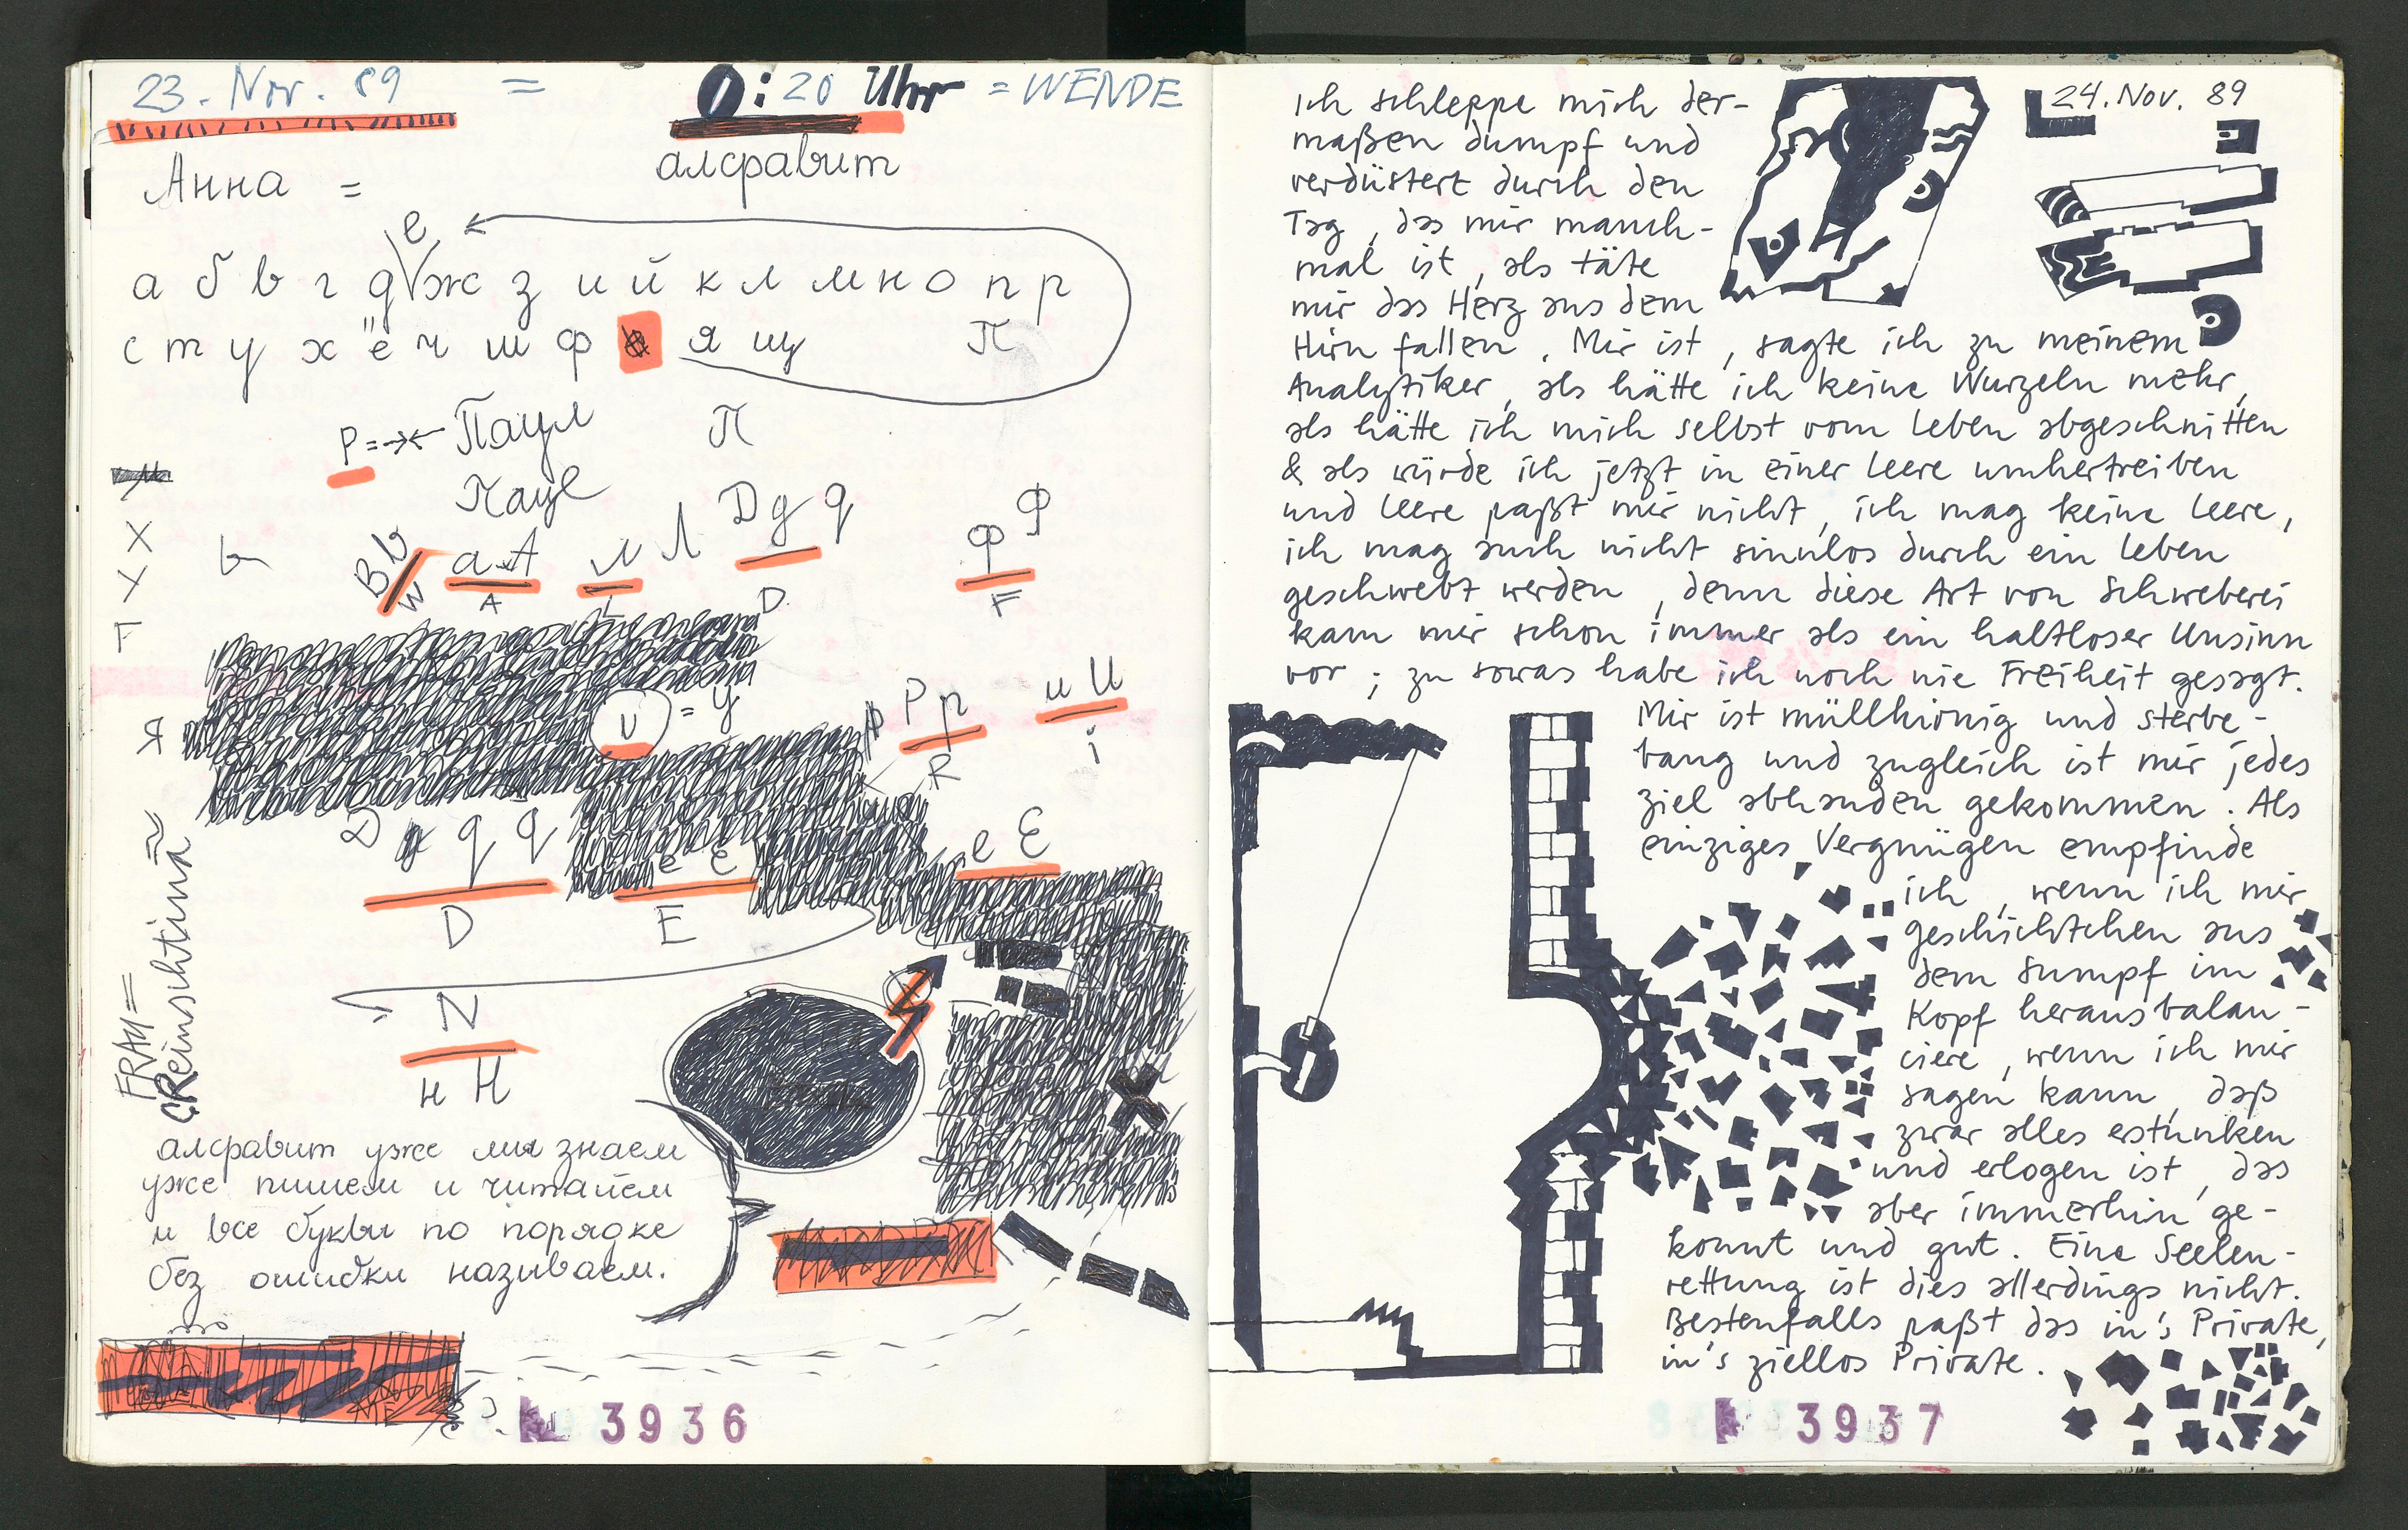 23. Nov. 89 = 0:20 Uhr = WENDE
Анна =
алфавит
е
а б в г д ж з и й к л м н о п р
с т у х ё ч ш ф я щ П
P = Паул П
Паул
Д g q
Ф
X
Y
F
B b W
a A
A
л Л
L
D
ф
F
u = y
Я
P p
R
и U
i
D q q
D
e E
E
e E
N
н Н
FRAM =
алфавит уже мы знаем
уже пишем и читайем
и все буквы по порядке
без ошибки називаем.
3936
24. Nov. 89
Ich schleppe mich der-
maßen dumpf und
verdüstert durch den
Tag, das mir manch-
mal ist, als täte
mir das Herz aus dem
Hirn fallen. Mir ist, sagte ich zu meinem
Analytiker, als hätte ich keine Wurzeln mehr,
als hätte ich mich selbst vom Leben abgeschnitten
& als würde ich jetzt in einer Leere umhertreiben
und Leere paßt mir nicht, ich mag keine Leere,
ich mag auch nicht sinnlos durch ein Leben
geschwebt werden, denn diese Art von Schweberei
kam mir schon immer als ein haltloser Unsinn
vor; zu sowas habe ich noch nie Freiheit gesagt.
Mir ist müllhirnig und sterbe-
bang und zugleich ist mir jedes
Ziel abhanden gekommen. Als
einziges Vergnügen empfinde
ich, wenn ich mir
Geschichtchen aus
dem Sumpf im
Kopf herausbalan-
ciere, wenn ich mir
sagen kann, daß
zwar alles erstunken
und erlogen ist, das
aber immerhin ge-
konnt und gut. Eine Seelen-
rettung ist dies allerdings nicht.
Bestenfalls paßt das in's Private,
in's ziellos Private.
3937